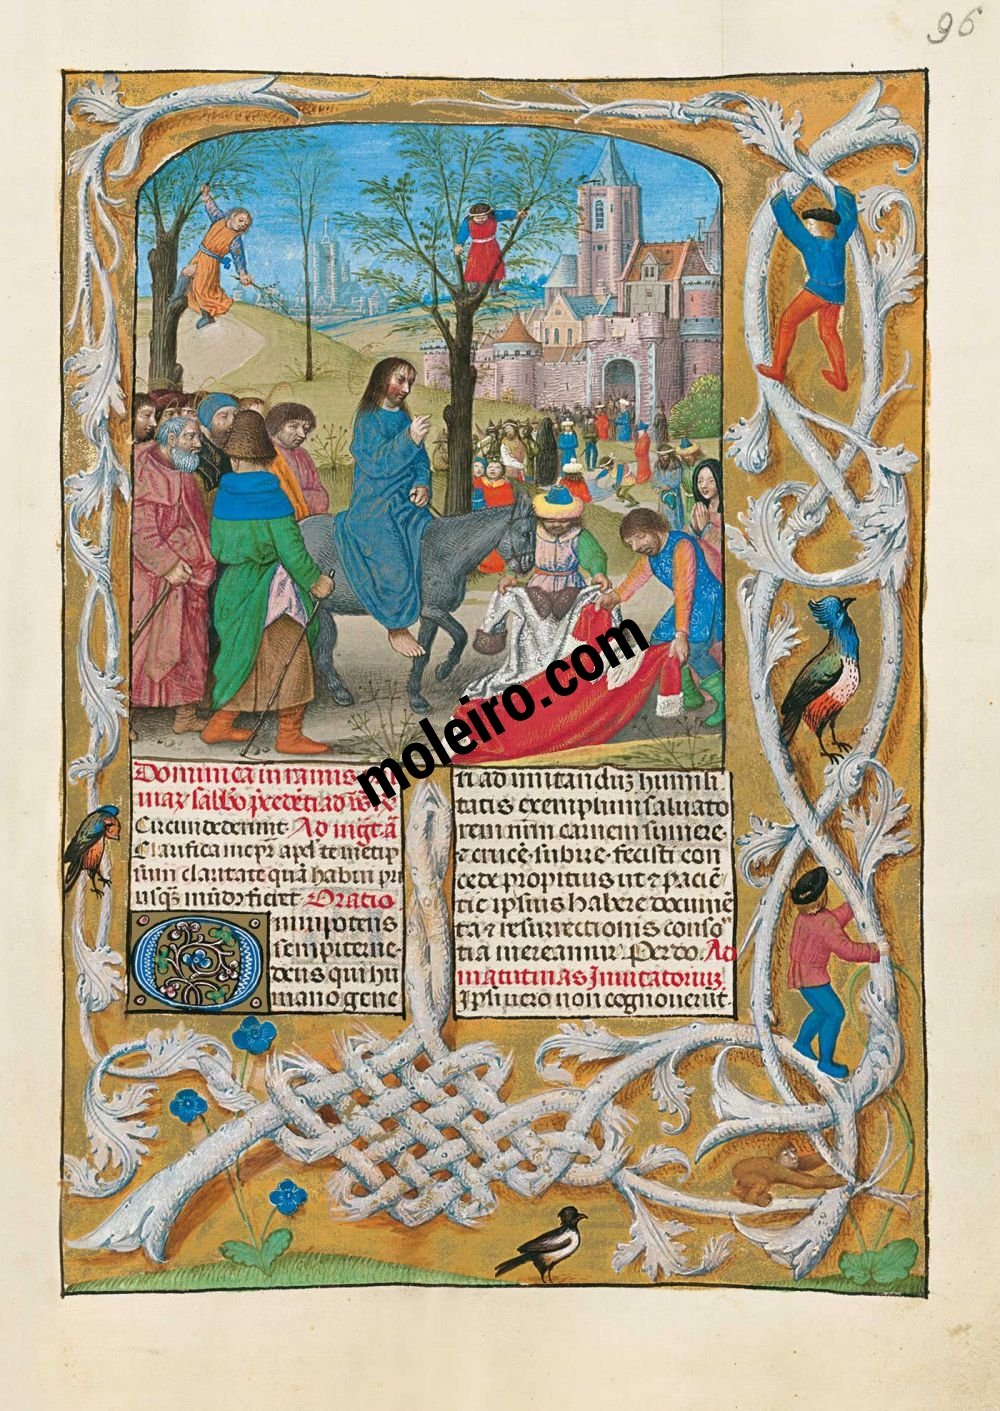 96
Dominica in ramis
max sabbo precedenti ad
Circundederunt. Ad
Clarifica me pr apd temetip
sum claritate quā habui pri
usq̄ mūdꝰ fieret. Oratio
Omnipotens
sempiterne
deus qui hu
mano gene
ri ad imitandūʒ humili
tatis exemplum saluato
rem nr̄m carnem sumere.
⁊ crucē subire fecisti con
cede propitius ut ⁊ paciē
tie ipsius habere documē
ta ⁊ resurrectionis conso
tia mereamur. Per do. Ad
matutinas Inuitatoriuʒ
Ipsi uero non cognouerūt.
moleiro.com